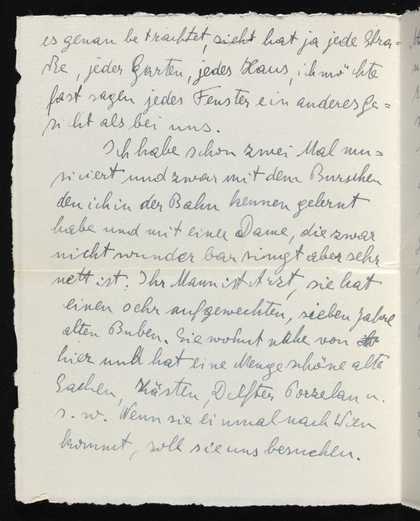 es genau betrachtet, sieht hat ja jede Stra-
ße, jeder Garten, jedes Haus, ich möchte
fast sagen jedes Fenster ein anderes Ge-
sicht als bei uns.
Ich habe schon zwei Mal mu-
siciert und zwar mit dem Burschen
den ich in der Bahn kennen gelernt
habe und mit einer Dame, die zwar
nicht wunderbar singt aber sehr
nett ist. Ihr Mann ist Arzt, sie hat
einen sehr aufgeweckten, sieben Jahre
alten Buben. Sie wohnt nahe von
hier und hat eine Menge schöne alte
Sachen, Kästen, Delfter Porzelan u.
s. w. Wenn sie einmal nach Wien
kommt, soll sie uns besuchen.